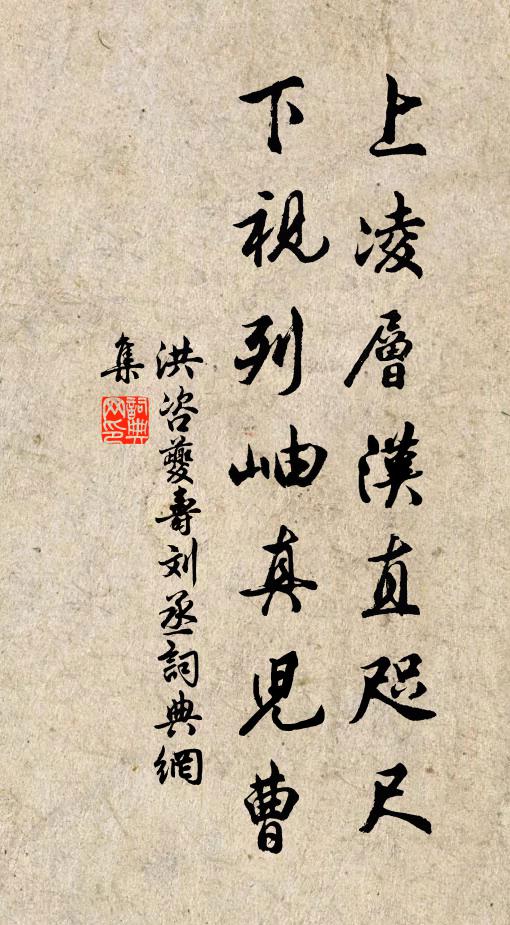 上凌層漢直咫尺
下視列岫真兒曹
洪咨夔壽刘丞詞典網
集
詞典网印